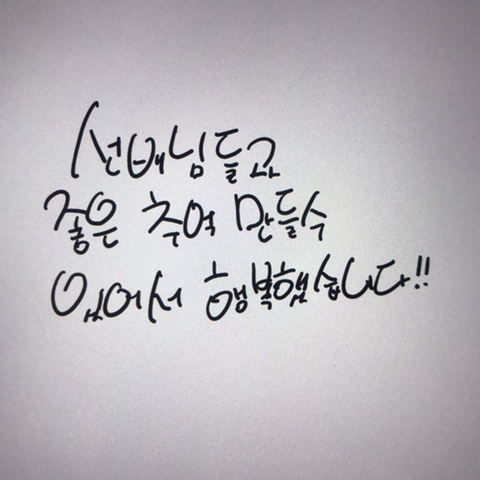 선배님들과
좋은 추억 만들수
있어서 행복했습니다!!